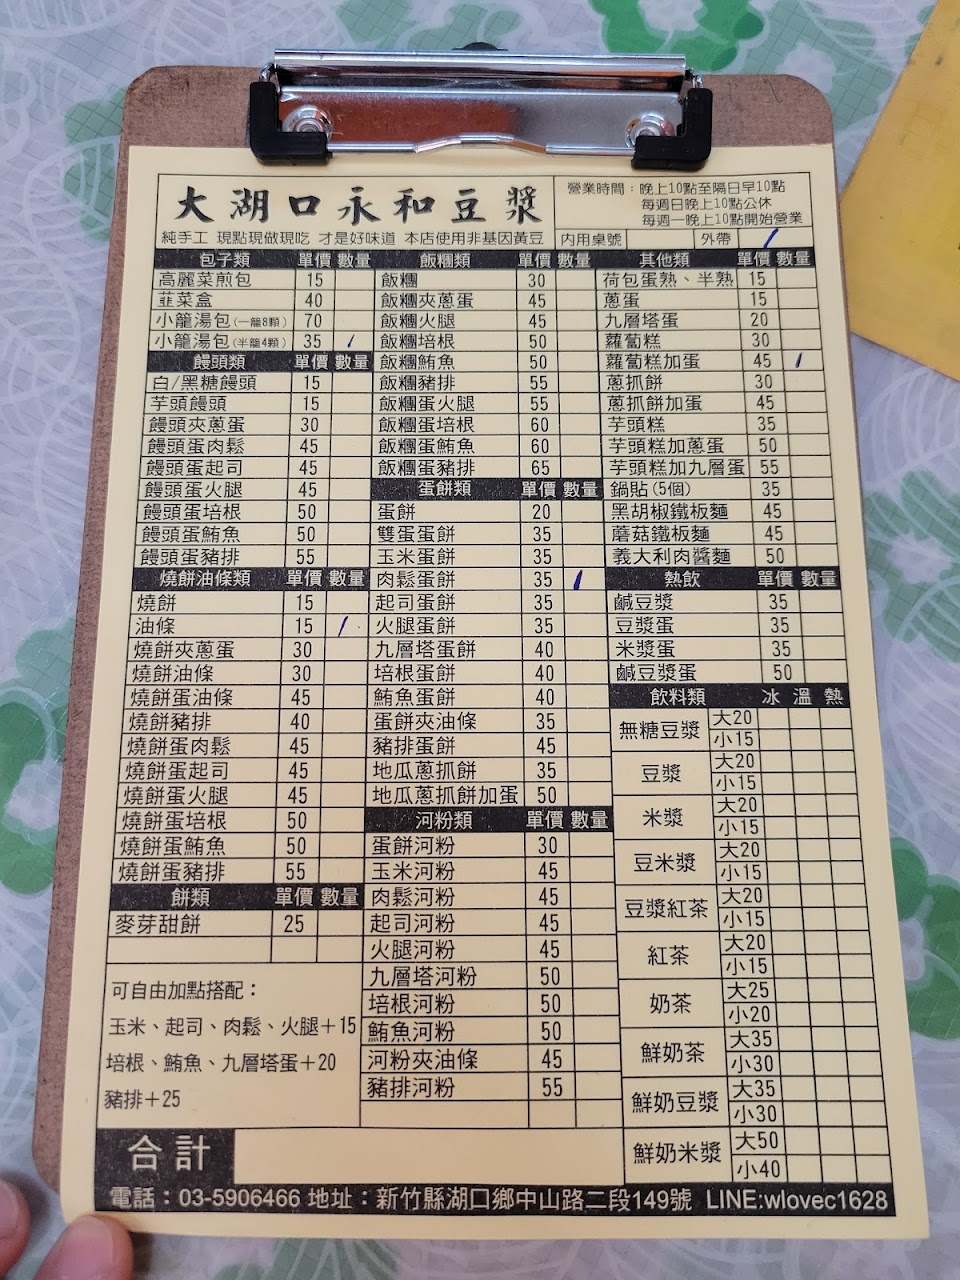 大湖口永和豆漿
純手工 現點現做現吃 才是好味道 本店使用非基因黃豆
營業時間：晚上10點至隔日早10點
每週日晚上10點公休
每週一晚上10點開始營業
內用桌號 外帶 /
包子類 單價 數量
高麗菜煎包 15
韮菜盒 40
小籠湯包(一籠8顆) 70
小籠湯包(半籠4顆) 35 /
饅頭類 單價 數量
白/黑糖饅頭 15
芋頭饅頭 15
饅頭夾蔥蛋 30
饅頭蛋肉鬆 45
饅頭蛋起司 45
饅頭蛋火腿 45
饅頭蛋培根 50
饅頭蛋鮪魚 50
饅頭蛋豬排 55
燒餅油條類 單價 數量
燒餅 15
油條 15 /
燒餅夾蔥蛋 30
燒餅油條 30
燒餅蛋油條 45
燒餅豬排 40
燒餅蛋肉鬆 45
燒餅蛋起司 45
燒餅蛋火腿 45
燒餅蛋培根 50
燒餅蛋鮪魚 50
燒餅蛋豬排 55
餅類 單價 數量
麥芽甜餅 25
可自由加點搭配：
玉米、起司、肉鬆、火腿+15
培根、鮪魚、九層塔蛋+20
豬排+25
飯糰類 單價 數量
飯糰 30
飯糰夾蔥蛋 45
飯糰火腿 45
飯糰培根 50
飯糰鮪魚 50
飯糰豬排 55
飯糰蛋火腿 55
飯糰蛋培根 60
飯糰蛋鮪魚 60
飯糰蛋豬排 65
蛋餅類 單價 數量
蛋餅 20
雙蛋蛋餅 35
玉米蛋餅 35
肉鬆蛋餅 35 /
起司蛋餅 35
火腿蛋餅 35
九層塔蛋餅 40
培根蛋餅 40
鮪魚蛋餅 40
蛋餅夾油條 35
豬排蛋餅 45
地瓜蔥抓餅 35
地瓜蔥抓餅加蛋 50
河粉類 單價 數量
蛋餅河粉 30
玉米河粉 45
肉鬆河粉 45
起司河粉 45
火腿河粉 45
九層塔河粉 50
培根河粉 50
鮪魚河粉 50
河粉夾油條 45
豬排河粉 55
其他類 單價 數量
荷包蛋熟、半熟 15
蔥蛋 15
九層塔蛋 20
蘿蔔糕 30
蘿蔔糕加蛋 45 /
蔥抓餅 30
蔥抓餅加蛋 45
芋頭糕 35
芋頭糕加蔥蛋 50
芋頭糕加九層蛋 55
鍋貼(5個) 35
黑胡椒鐵板麵 45
蘑菇鐵板麵 45
義大利肉醬麵 50
熱飲 單價 數量
鹹豆漿 35
豆漿蛋 35
米漿蛋 35
鹹豆漿蛋 50
飲料類 冰 溫 熱
無糖豆漿 大20
小15
豆漿 大20
小15
米漿 大20
小15
豆米漿 大20
小15
豆漿紅茶 大20
小15
紅茶 大20
小15
奶茶 大25
小20
鮮奶茶 大35
小30
鮮奶豆漿 大35
小30
鮮奶米漿 大50
小40
合計
電話：03-5906466 地址：新竹縣湖口鄉中山路二段149號 LINE:wlovec1628